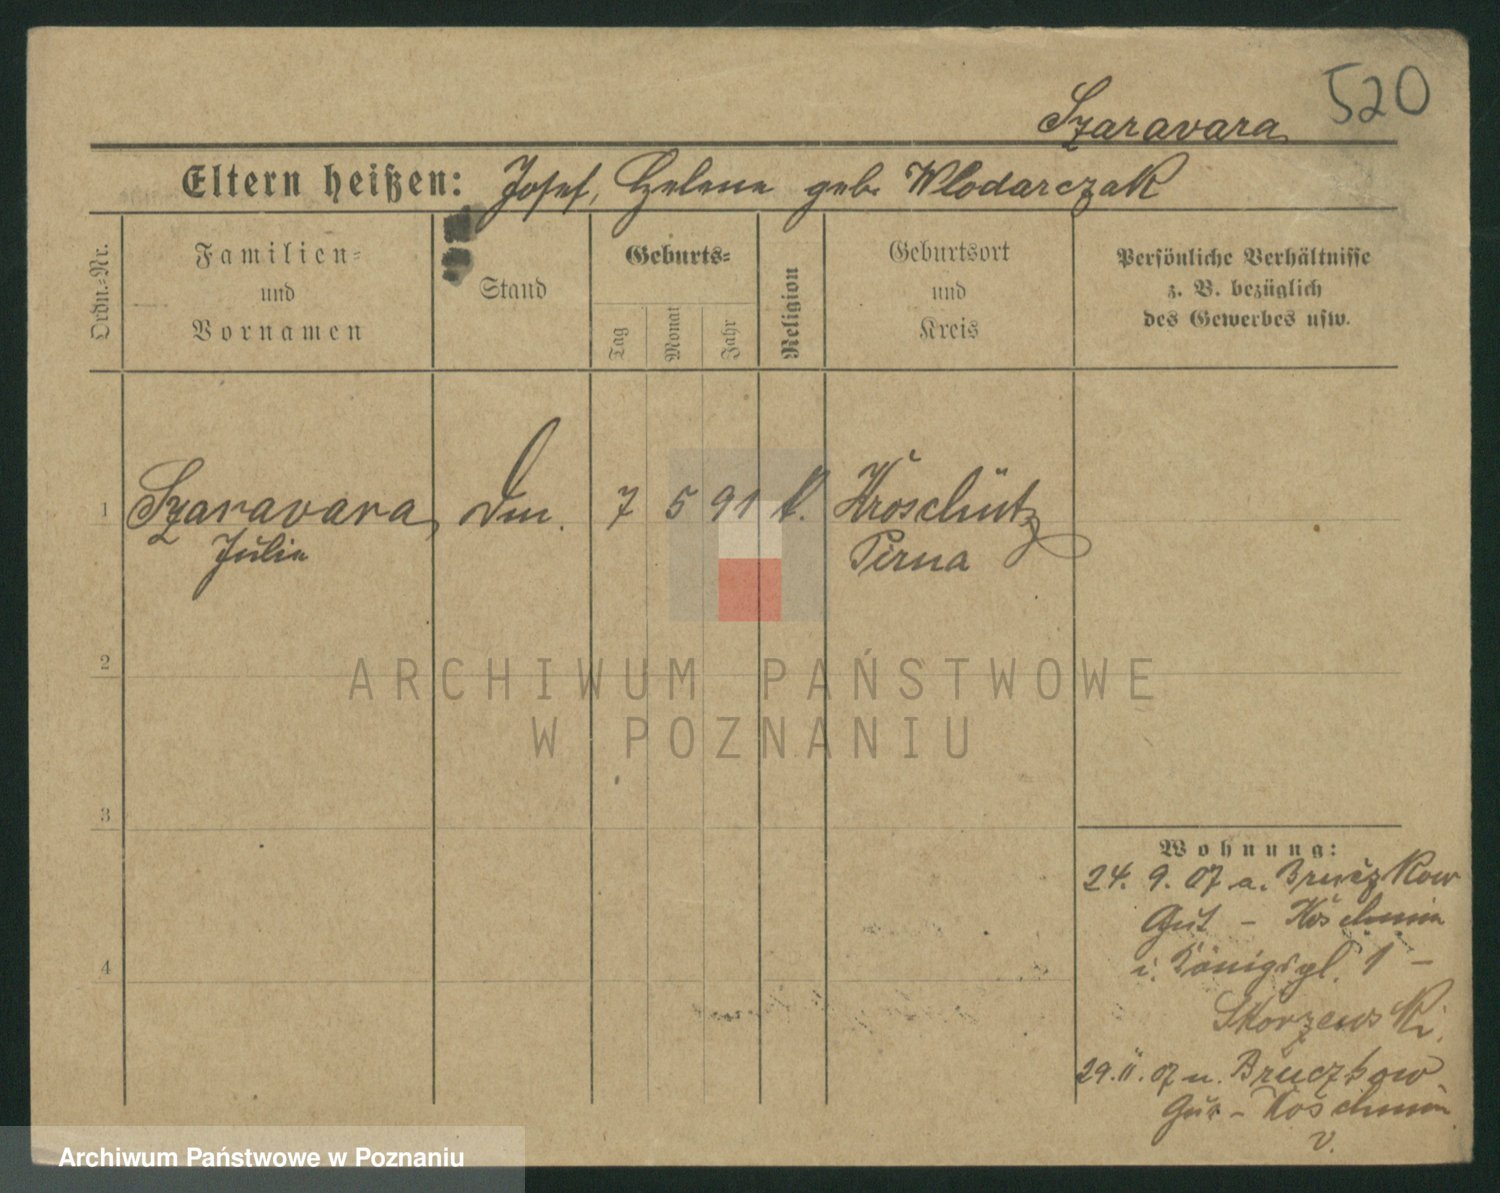 520
Szaravara
Eltern heißen: Josef, Helene geb. Wlodarczak
Ordn.-Nr.
Familien-
und
Vornamen
Stand
Geburts-
Tag
Monat
Jahr
Religion
Geburtsort
und
Kreis
Persönliche Verhältnisse
z. B. bezüglich
des Gewerbes usw.
1 Szaravara, Dm. 7 5 91 k. Kroschütz
Julie Pirna
2
ARCHIWUM PAŃSTWOWE
W POZNANIU
3
Wohnung:
24. 9. 07 a. Bruczkow
Gut - Koschmin
i. Königspl. 1 -
Skorzewski.
4
29. 11. 07 n. Bruczkow
Gut - Koschmin
v.
Archiwum Państwowe w Poznaniu